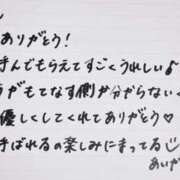 ありがとう!
呼んでもらえてすごくうれしい♪
うがもてなす側か分からないく
優しくしてくれてありがとう♡
呼ばれるの楽しみにまってる
あいが